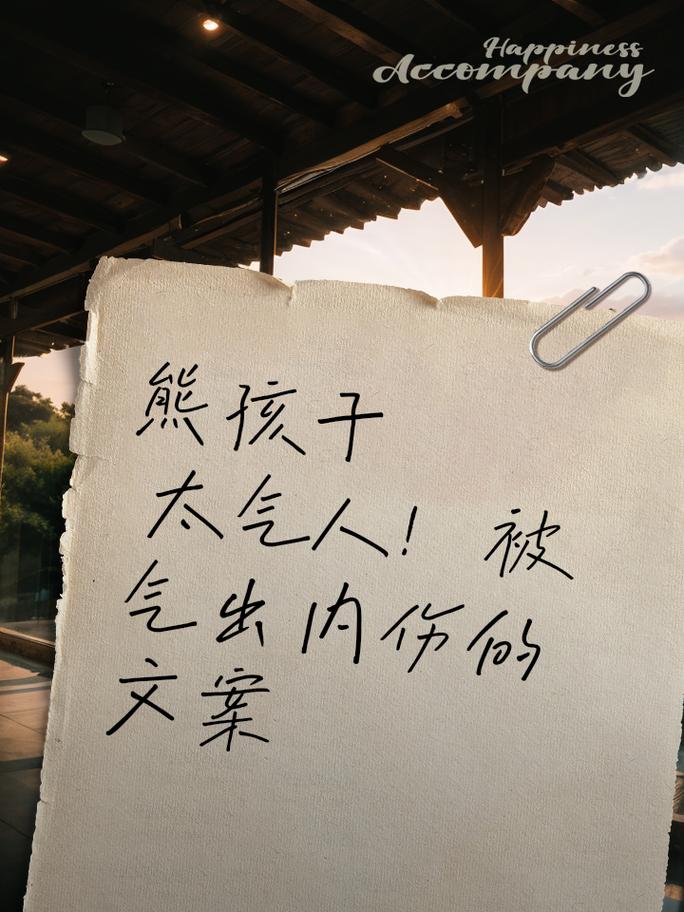 Happiness
Accompany
熊孩子
太气人！ 被
气出内伤的
文案